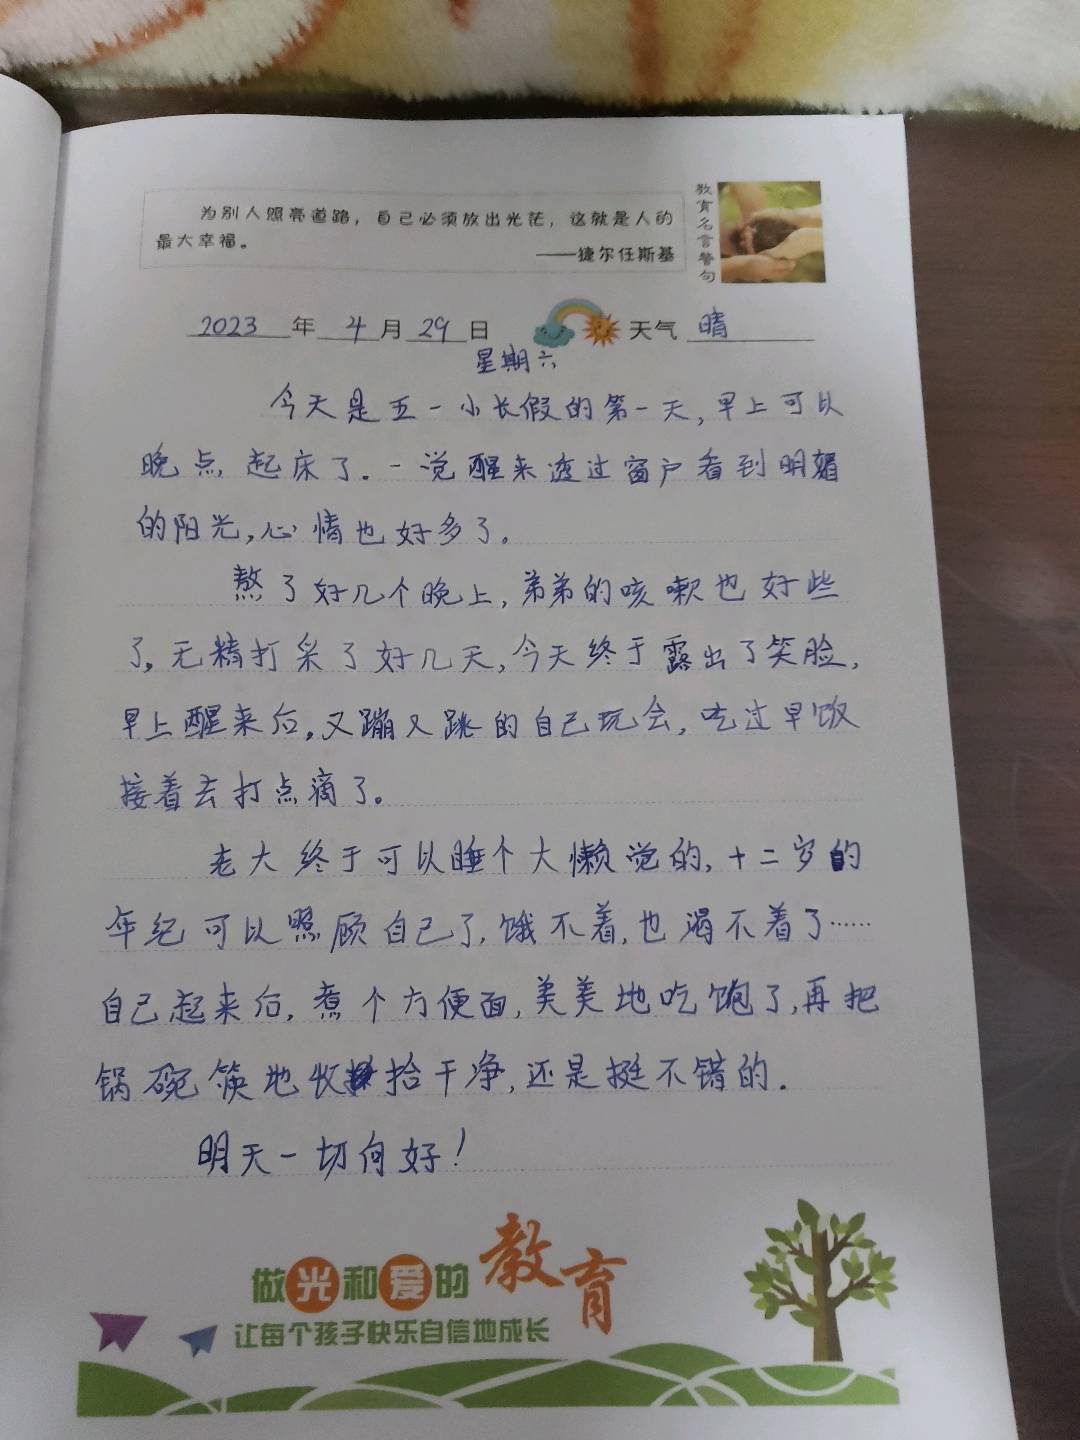 为别人照亮道路，自己必须放出光芒，这就是人的
最大幸福。
——捷尔任斯基
教育名言警句
2023年4月29日 天气 晴
星期六
今天是五一小长假的第一天,早上可以
晚点起床了。一觉醒来透过窗户看到明媚
的阳光,心情也好多了。
熬了好几个晚上,弟弟的咳嗽也好些
了,无精打采了好几天,今天终于露出了笑脸,
早上醒来后,又蹦又跳的自己玩会,吃过早饭
接着去打点滴了。
老大终于可以睡个大懒觉的,十二岁的
年纪可以照顾自己了,饿不着,也渴不着了……
自己起来后,煮个方便面,美美地吃饱了,再把
锅碗筷地收拾干净,还是挺不错的.
明天一切向好!
做光和爱的教育
让每个孩子快乐自信地成长